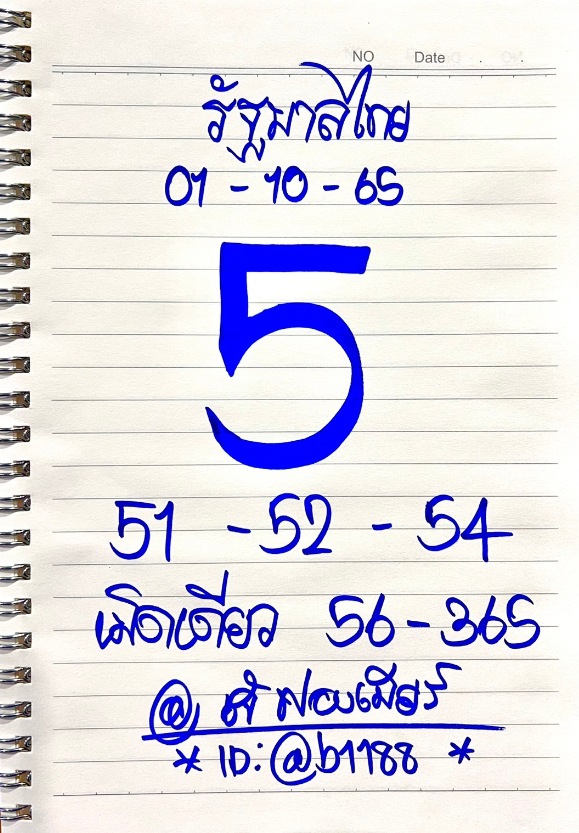 NO Date . .
รัฐบาลไทย
01 - 10 - 65
5
51 - 52 - 54
เม็ดเดียว 56 - 365
@
* ID: @b1188 *